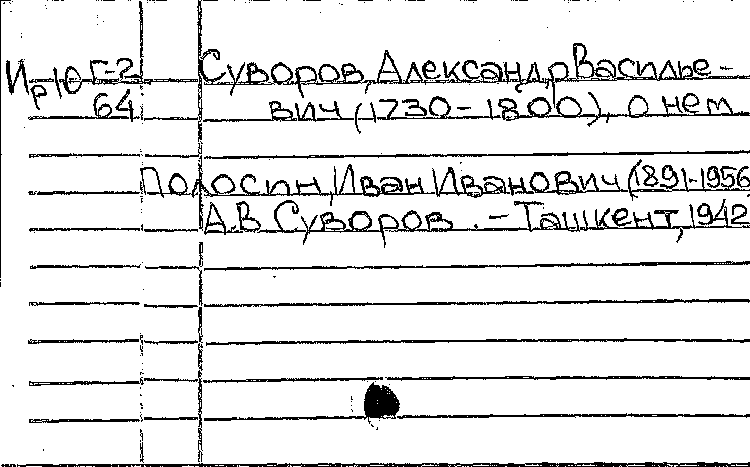 Ир10 Г-2 Суворов, Александр Василье-
64 вич (1730-1800), о нем
Полосин, Иван Иванович (1891-1956
А.В. Суворов. - Ташкент, 1942